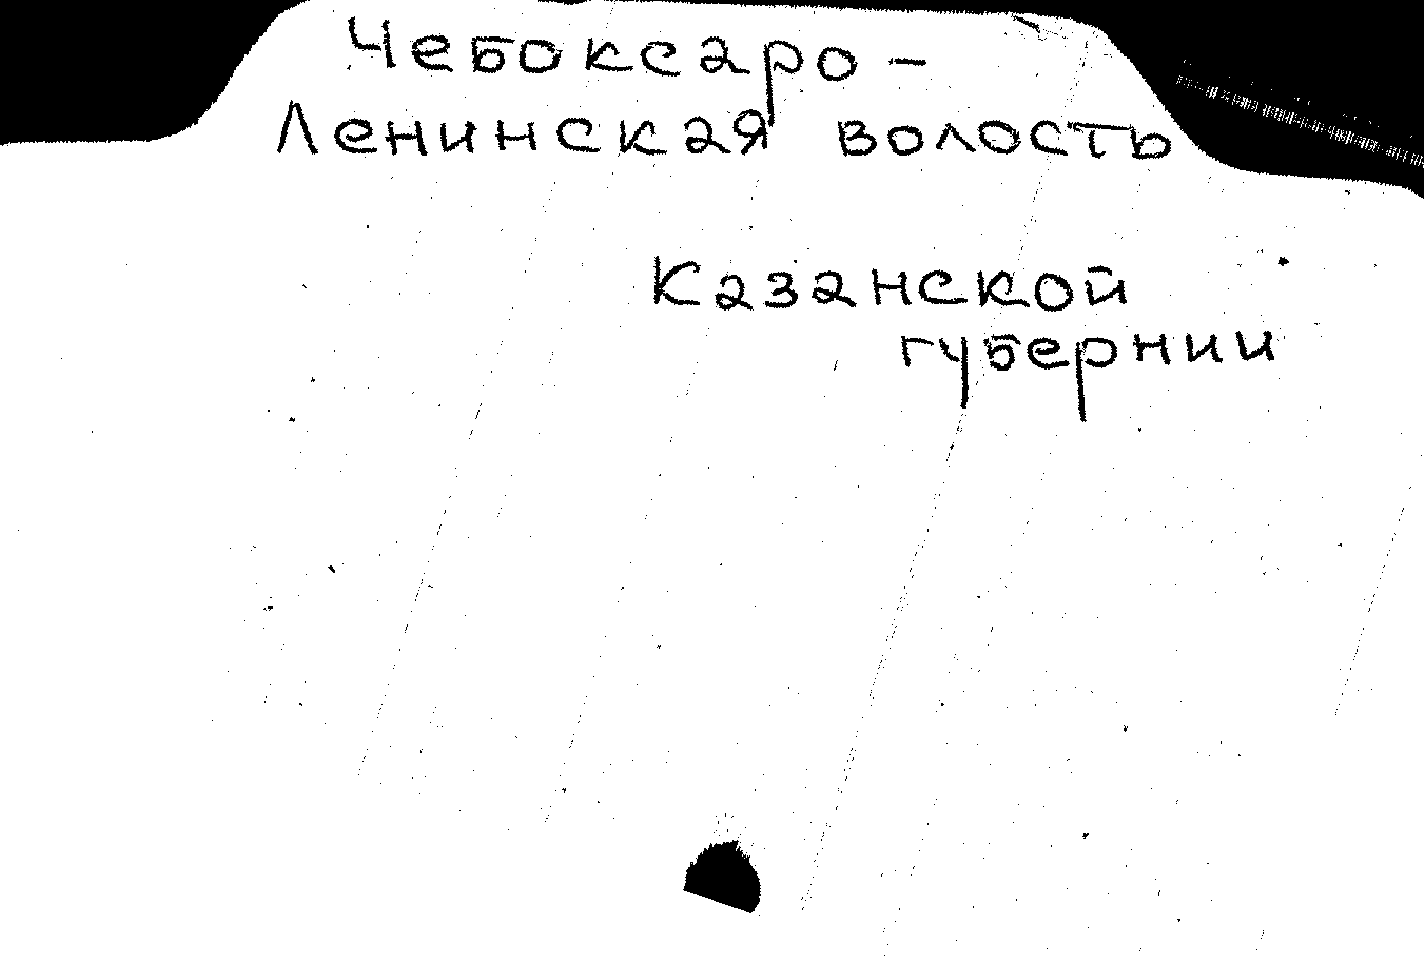 Чебоксаро -
Ленинская волость
Казанской
губернии